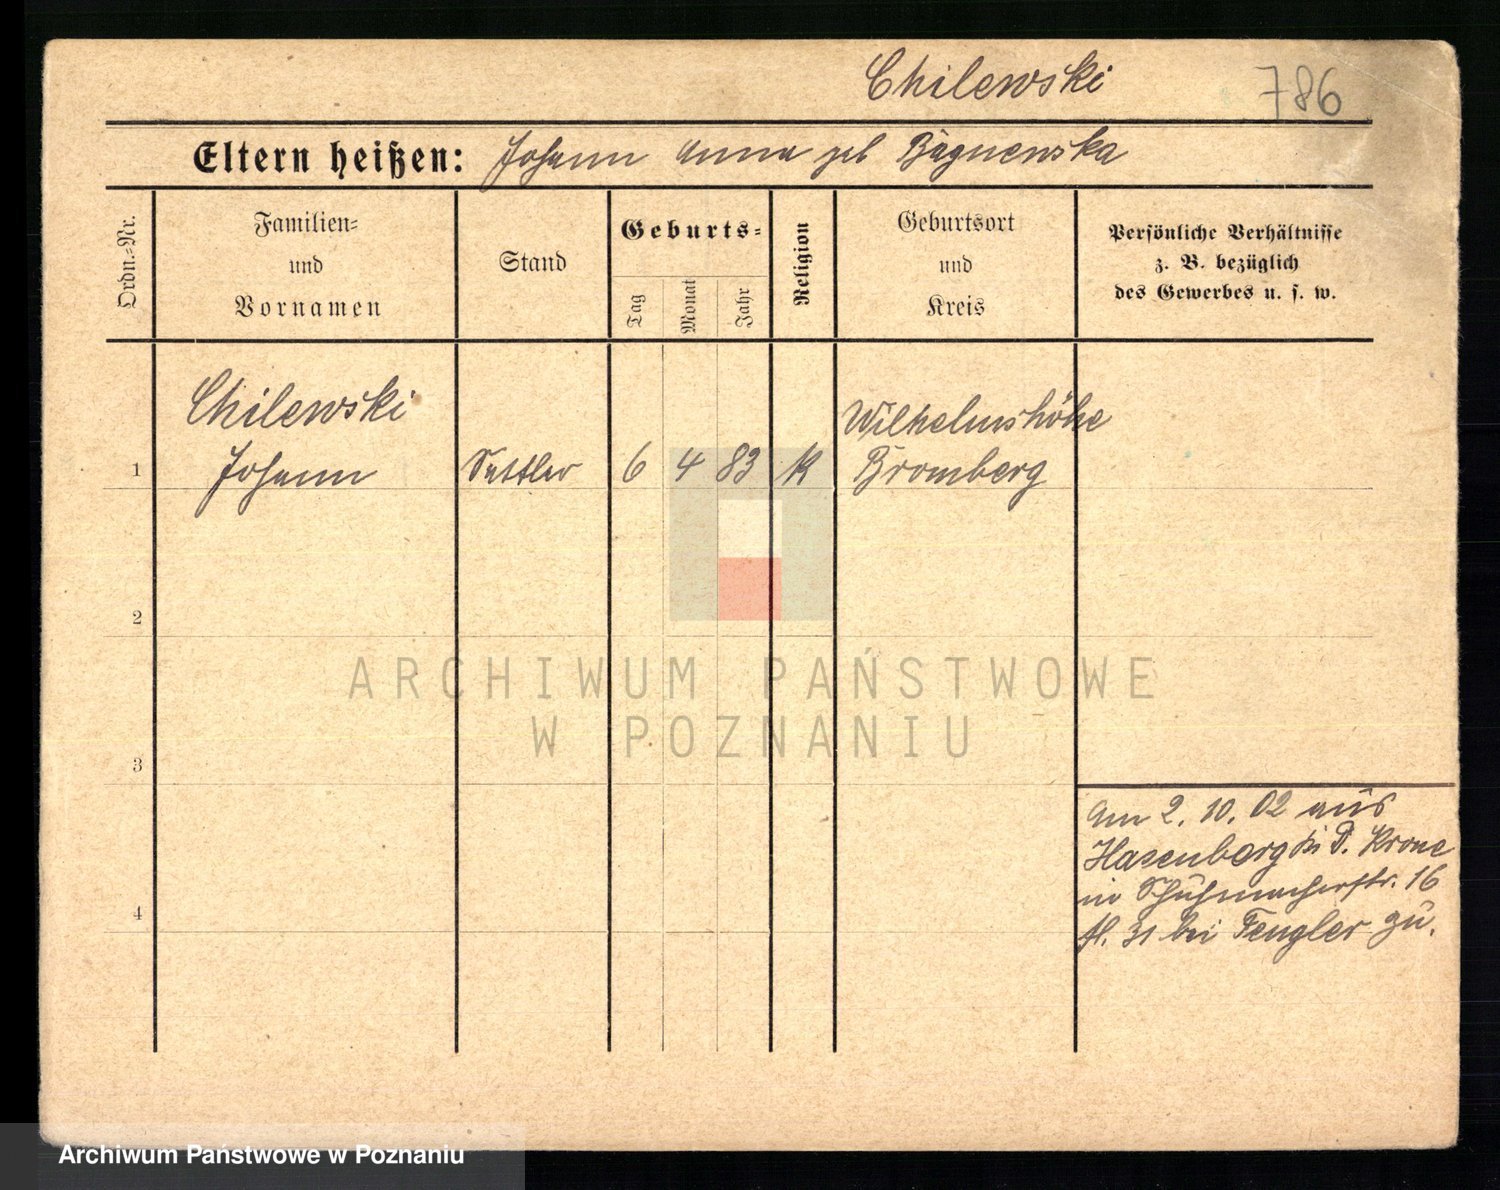 Chilewski
786
Eltern heißen: Johann Anna geb Bagnewska
Ordn.-Nr.
Familien-
und
Vornamen
Stand
Geburts-
Tag
Monat
Jahr
Religion
Geburtsort
und
Kreis
Persönliche Verhältnisse
z. B. bezüglich
des Gewerbes u. s. w.
Chilewski
Wilhelmshöhe
1 Johann Sattler 6 4 83 K Bromberg
2
ARCHIWUM PAŃSTWOWE
W POZNANIU
3
Am 2. 10. 02 aus
Hasenberg D. Krone
in Schuhmacherstr. 16
bei Fengler zu.
4
Archiwum Państwowe w Poznaniu